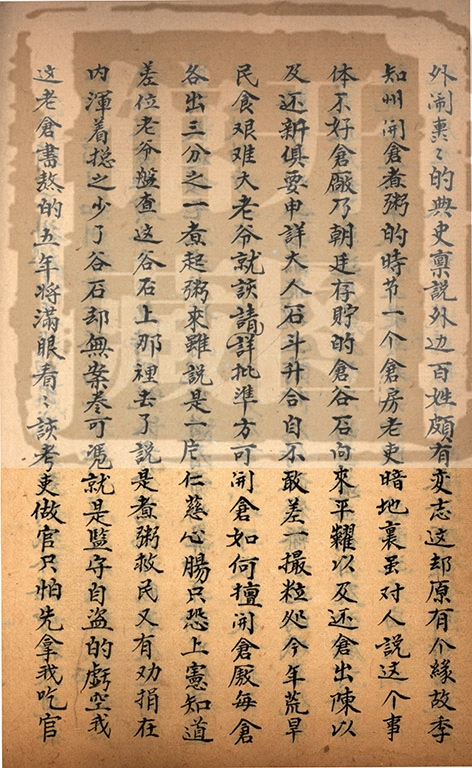 外闹裏〻的典史禀説外边百姓頗有变志这却原有个縁故季
知州開倉煮粥的時节一个倉房老吏暗地裏虽对人説这个事
体不好倉厫乃朝廷存貯的倉谷石向來平糶以及还倉出陳以
及还新俱要申詳大人石斗升合自不敢差一撮粒処今年荒旱
民食艰难大老爷就该請詳批準方可開倉如何擅開倉厫每倉
各出三分之一煮起粥來雖説是一片仁慈心腸只恐上憲知道
差位老爷盤查这谷石上那裡去了説是煮粥救民又有劝捐在
内渾着揔之少了谷石却無案卷可憑就是監守自盗的虧空我
这老倉書熬的五年将滿眼看〻该考吏做官只怕先拿我吃官